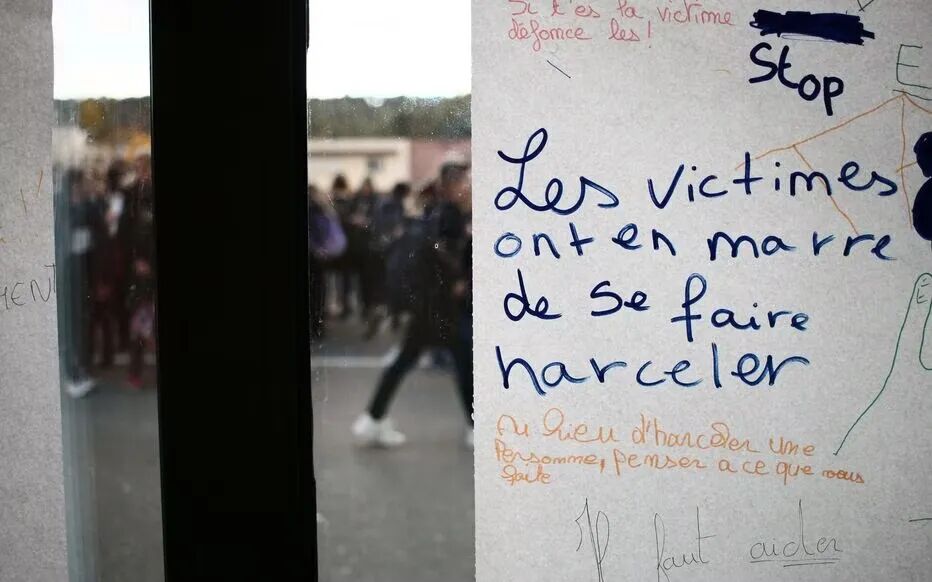 Si t'es la victime
défonce les !
Stop
E
Les victimes
ont en marre
de se faire
harceler
MENT
E
E
Au lieu d'harceler une
Personne, penser a ce que vous
faite
Il faut aider